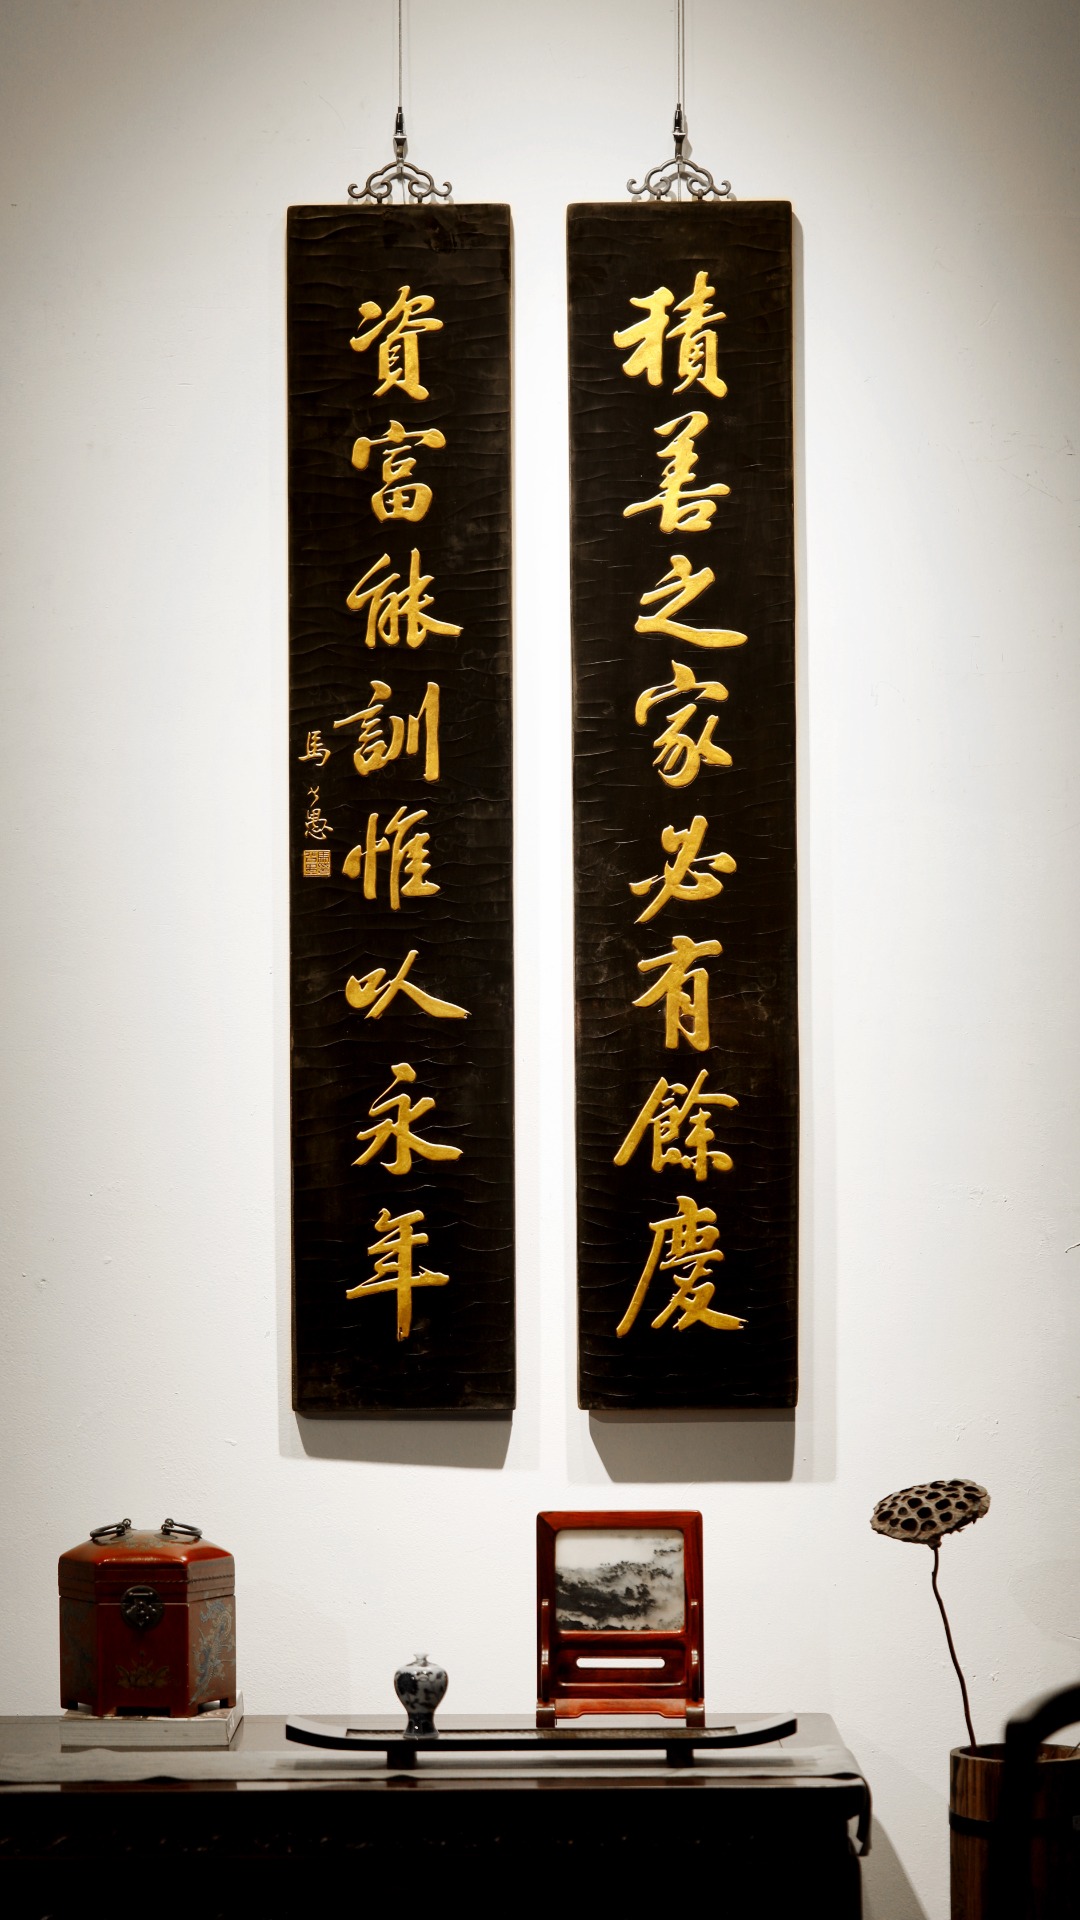 積善之家必有餘慶
資富能訓惟以永年
馬公愚